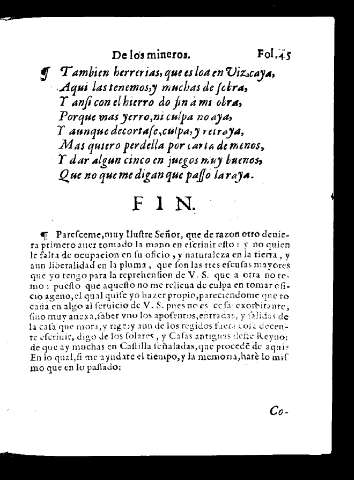 De los mineros. Fol. 45
¶ Tambien herrerias, que es loa en Vizcaya,
Aqui las tenemos, y muchas de febra,
Y ansi con el hierro do fin à mi obra,
Porque mas yerro, ni culpa no aya,
Y aunque de cortase, culpa, y retraya,
Mas quiero perdella por carta de menos,
Y dar algun cinco en juegos muy buenos,
Que no que me digan que passo la raya.
F I N.
¶ Paresceme, muy Ilustre Señor, que de razon otro devie-
ra primero aver tomado la mano en escrivir esto: y no quien
le falta de ocupacion en su oficio, y naturaleza en la tierra, y
aun liberalidad en la pluma, que son las tres escusas mayores
que yo tengo para la reprehension de V. S. que a otra no te-
mo: puesto que aquesto no me relieva de culpa en tomar ofi-
cio ageno, el qual quise yo hazer propio, pareciendome que to
cava en algo al servicio de V. S. pues no es cosa exorbitante,
sino muy anexa, saber uno los aposentos, entradas, y salidas de
la casa que mora, y rige: y aun de los regidos fuera cosa decen-
te escrivir, digo de los solares, y Casas antiguas deste Reyno:
de que ay muchas en Castilla señaladas, que procedē de aqui:
En lo qual, si me ayudare el tiempo, y la memoria, harè lo mis
mo que en lo passado:
Co-